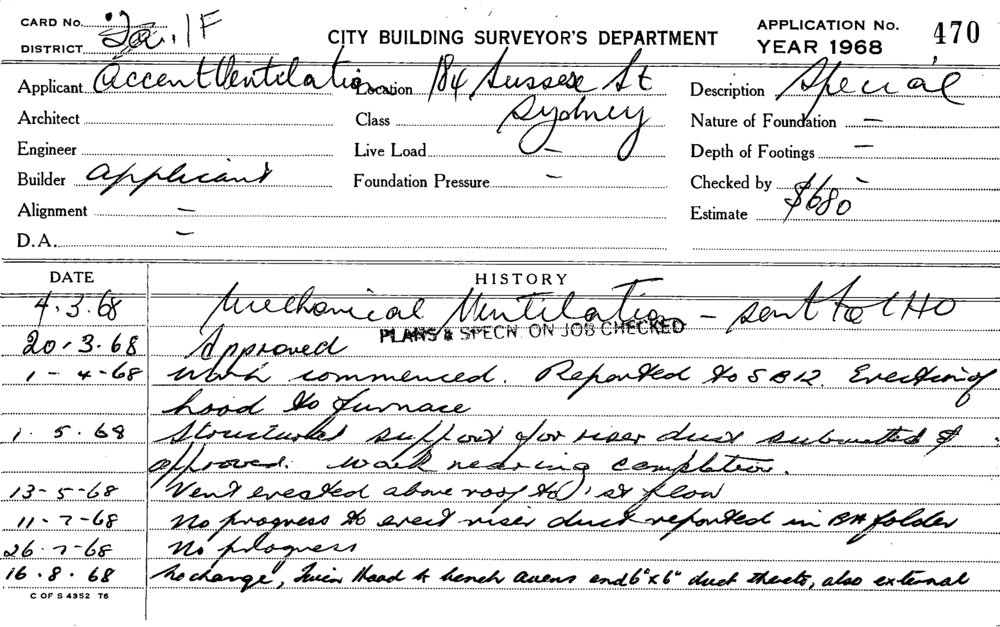 CARD No. 1F
DISTRICT
CITY BUILDING SURVEYOR'S DEPARTMENT
APPLICATION No. 470
YEAR 1968
Applicant Accent Ventilation
Location 184 Sussex St
Sydney
Description Special
Architect
Class
Nature of Foundation —
Engineer
Live Load —
Depth of Footings —
Builder Applicant
Foundation Pressure —
Checked by —
Alignment —
Estimate $680
D.A. —
DATE HISTORY
4.3.68 Mechanical Ventilation — sent to CHO
PLANS & SPECN. ON JOB CHECKED
20.3.68 Approved
1-4-68 Work commenced. Reported to SB12. Erection of
hood to furnace
1.5.68 Structural support for riser duct submitted &
approved. Work nearing completion.
13-5-68 Vent erected above roof to 1st floor
11-7-68 No progress to erect riser duct reported in BH folder
26.7-68 No progress
16.8.68 No change, Hood to bench ovens and 6"x6" duct thereto, also external
C OF S 4352 T6